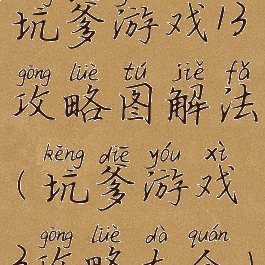 坑爹游戏13
gōng lüè tú jiě fǎ
攻略图解法
kēng diē yóu xì
(坑爹游戏
gōng lüè dà quán
3攻略大全)